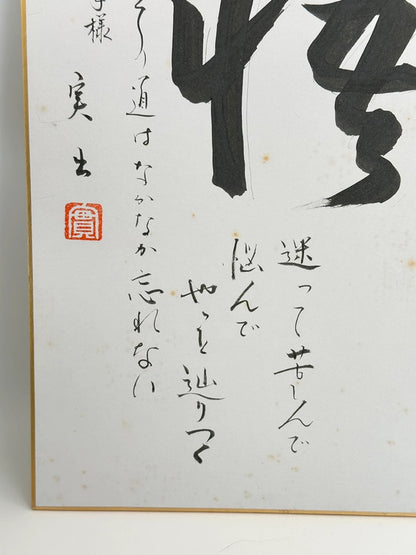 悟
迷って苦しんで
悩んで
やっと辿りつく
とり道はなかなか忘れない
様
実
實